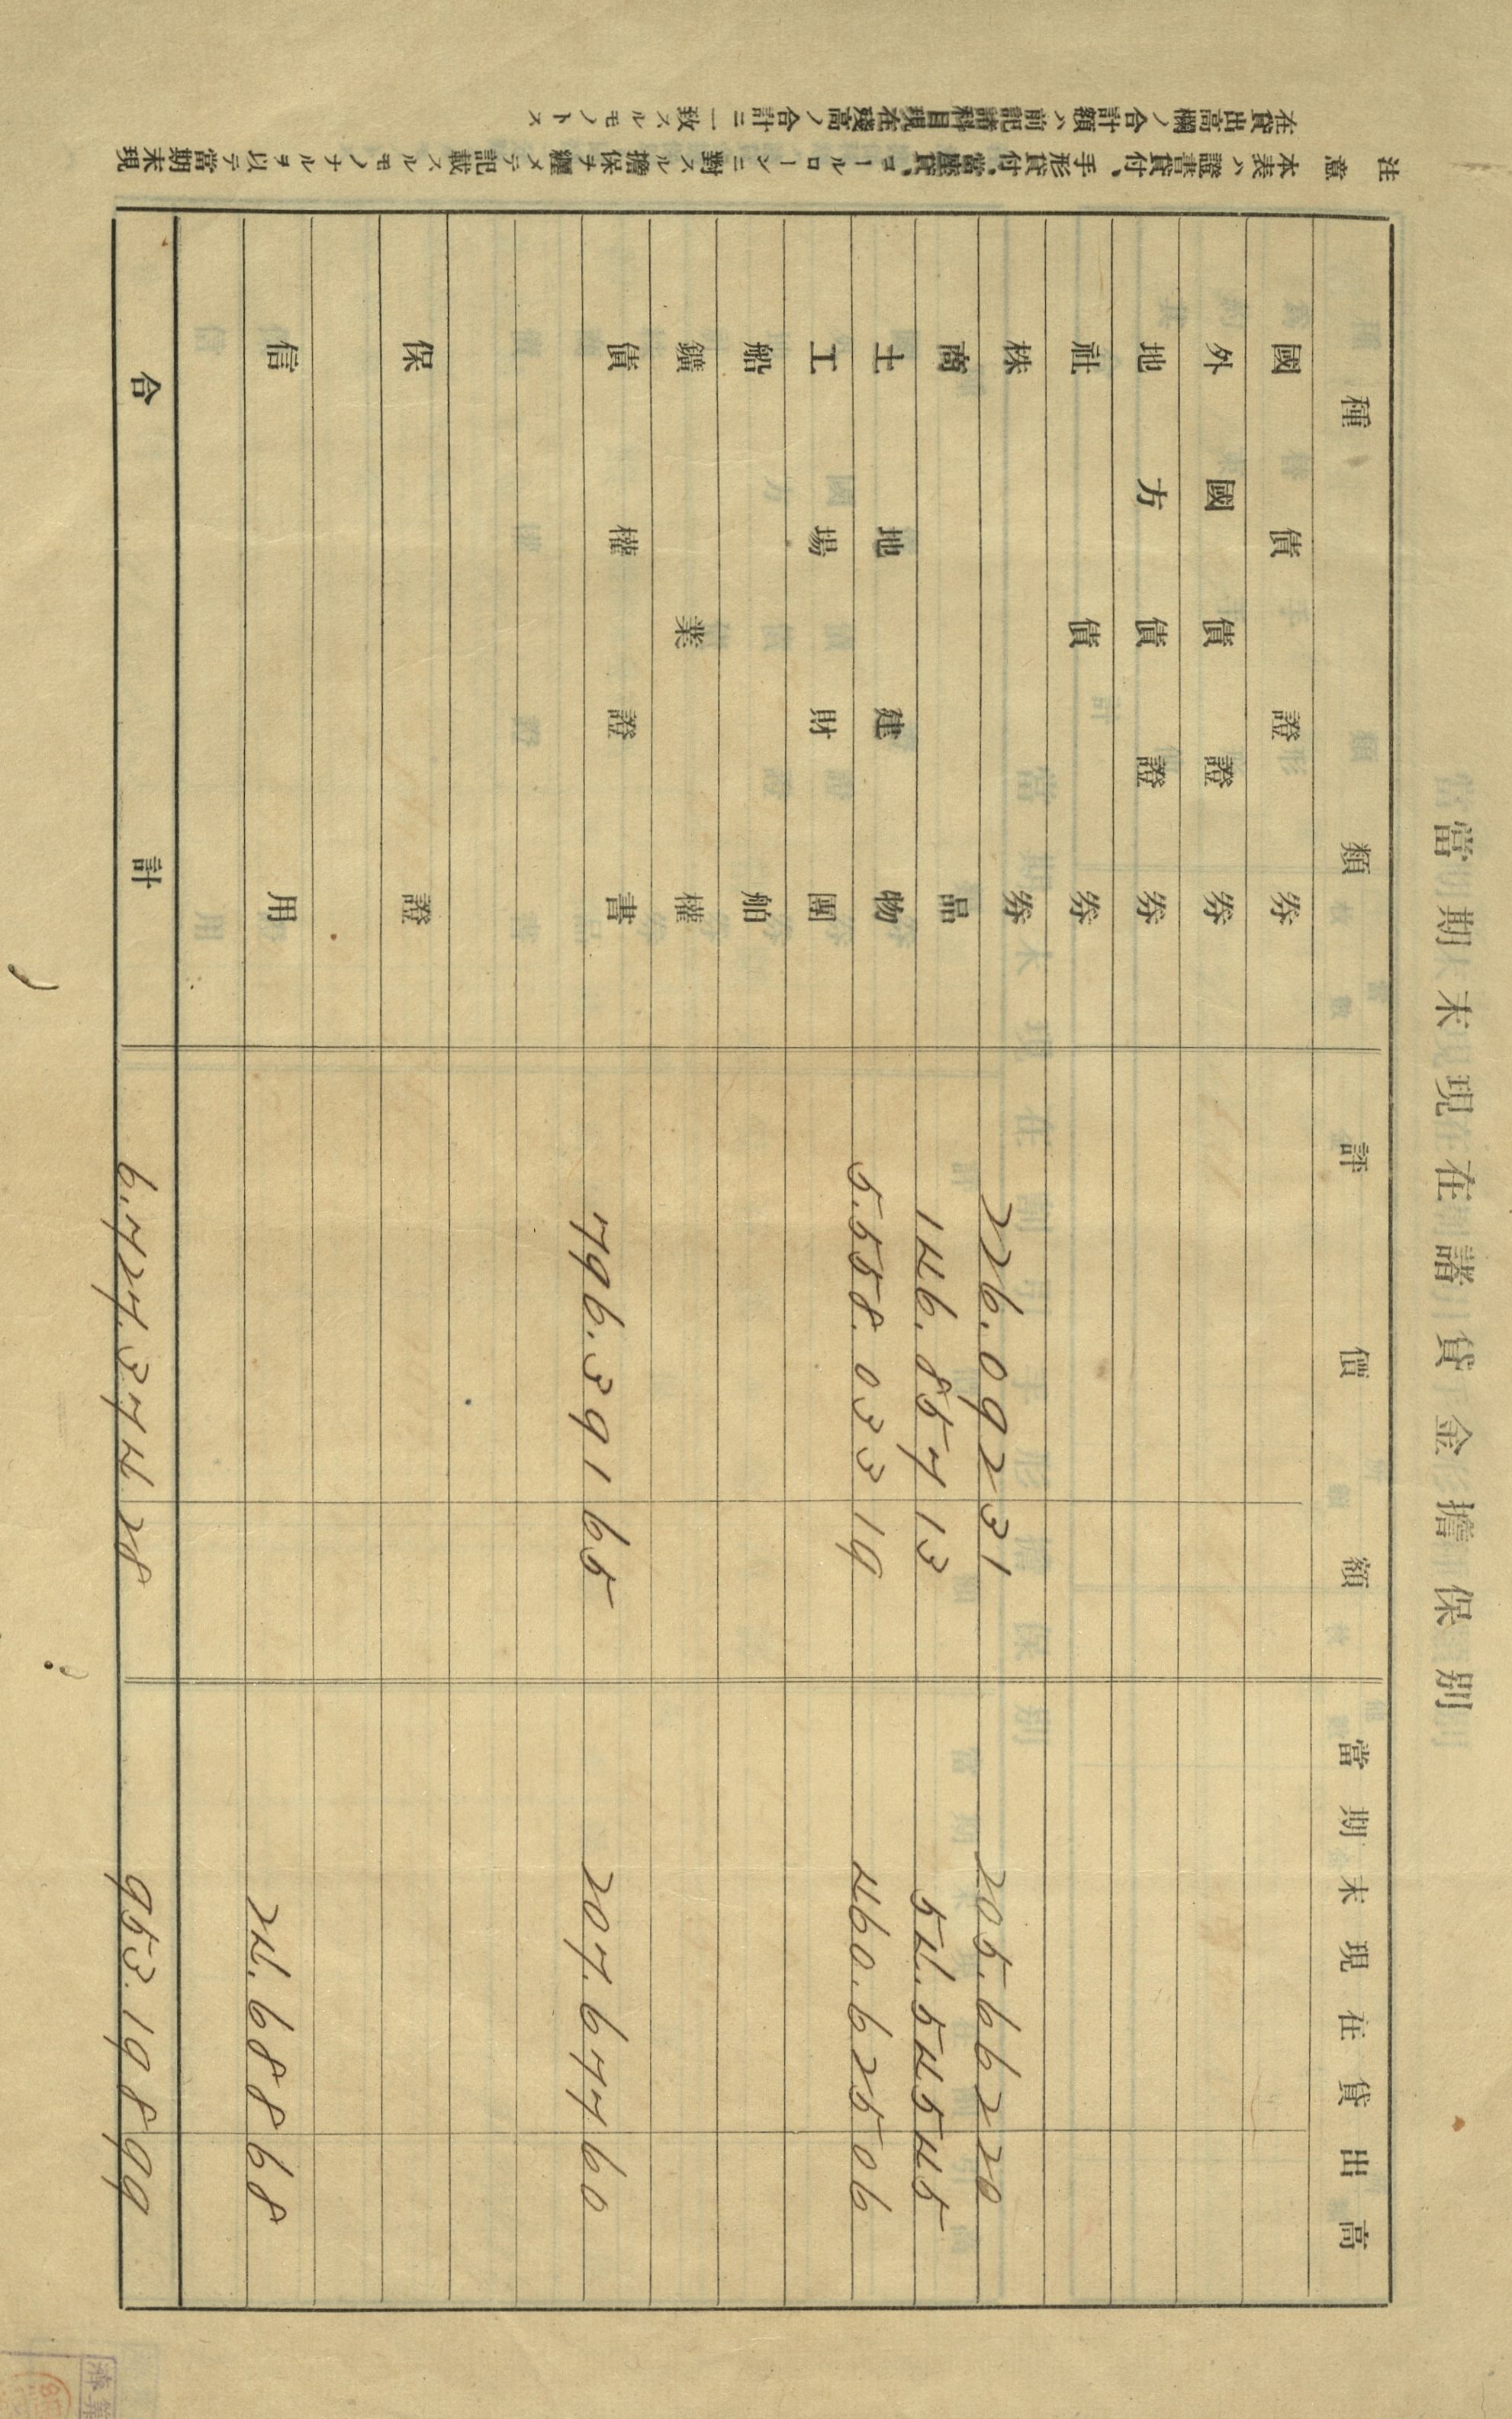 當期末現在諸貸金擔保別
種類 評價額 當期末現在貸出高
國債證券
外國債證券
地方債證券
社債券
株券 226.092 31 205.662 20
商品 146.857 13 54.545 45
土地建物 5.558.033 19 460.625 06
工場財團
船舶
鑛業權
債權證書 796.391 65 207.677 60
保證
信用 24.688 68
合計 6.727.374 28 953.198 99
注意 本表ハ證書貸付、手形貸付、當座貸、コールローンニ對スル擔保ヲ纏メテ記載スルモノナルヲ以テ當期末現
在貸出高欄ノ合計額ハ前記諸科目現在殘高ノ合計ニ一致スルモノトス